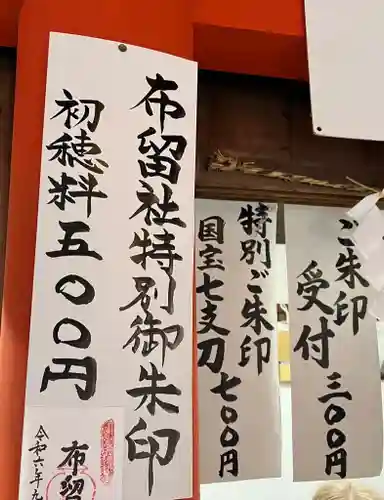 布留社特別御朱印
初穂料五〇〇円
令和六年九
布留
特別ご朱印
国宝七支刀七〇〇円
ご朱印
受付三〇〇円